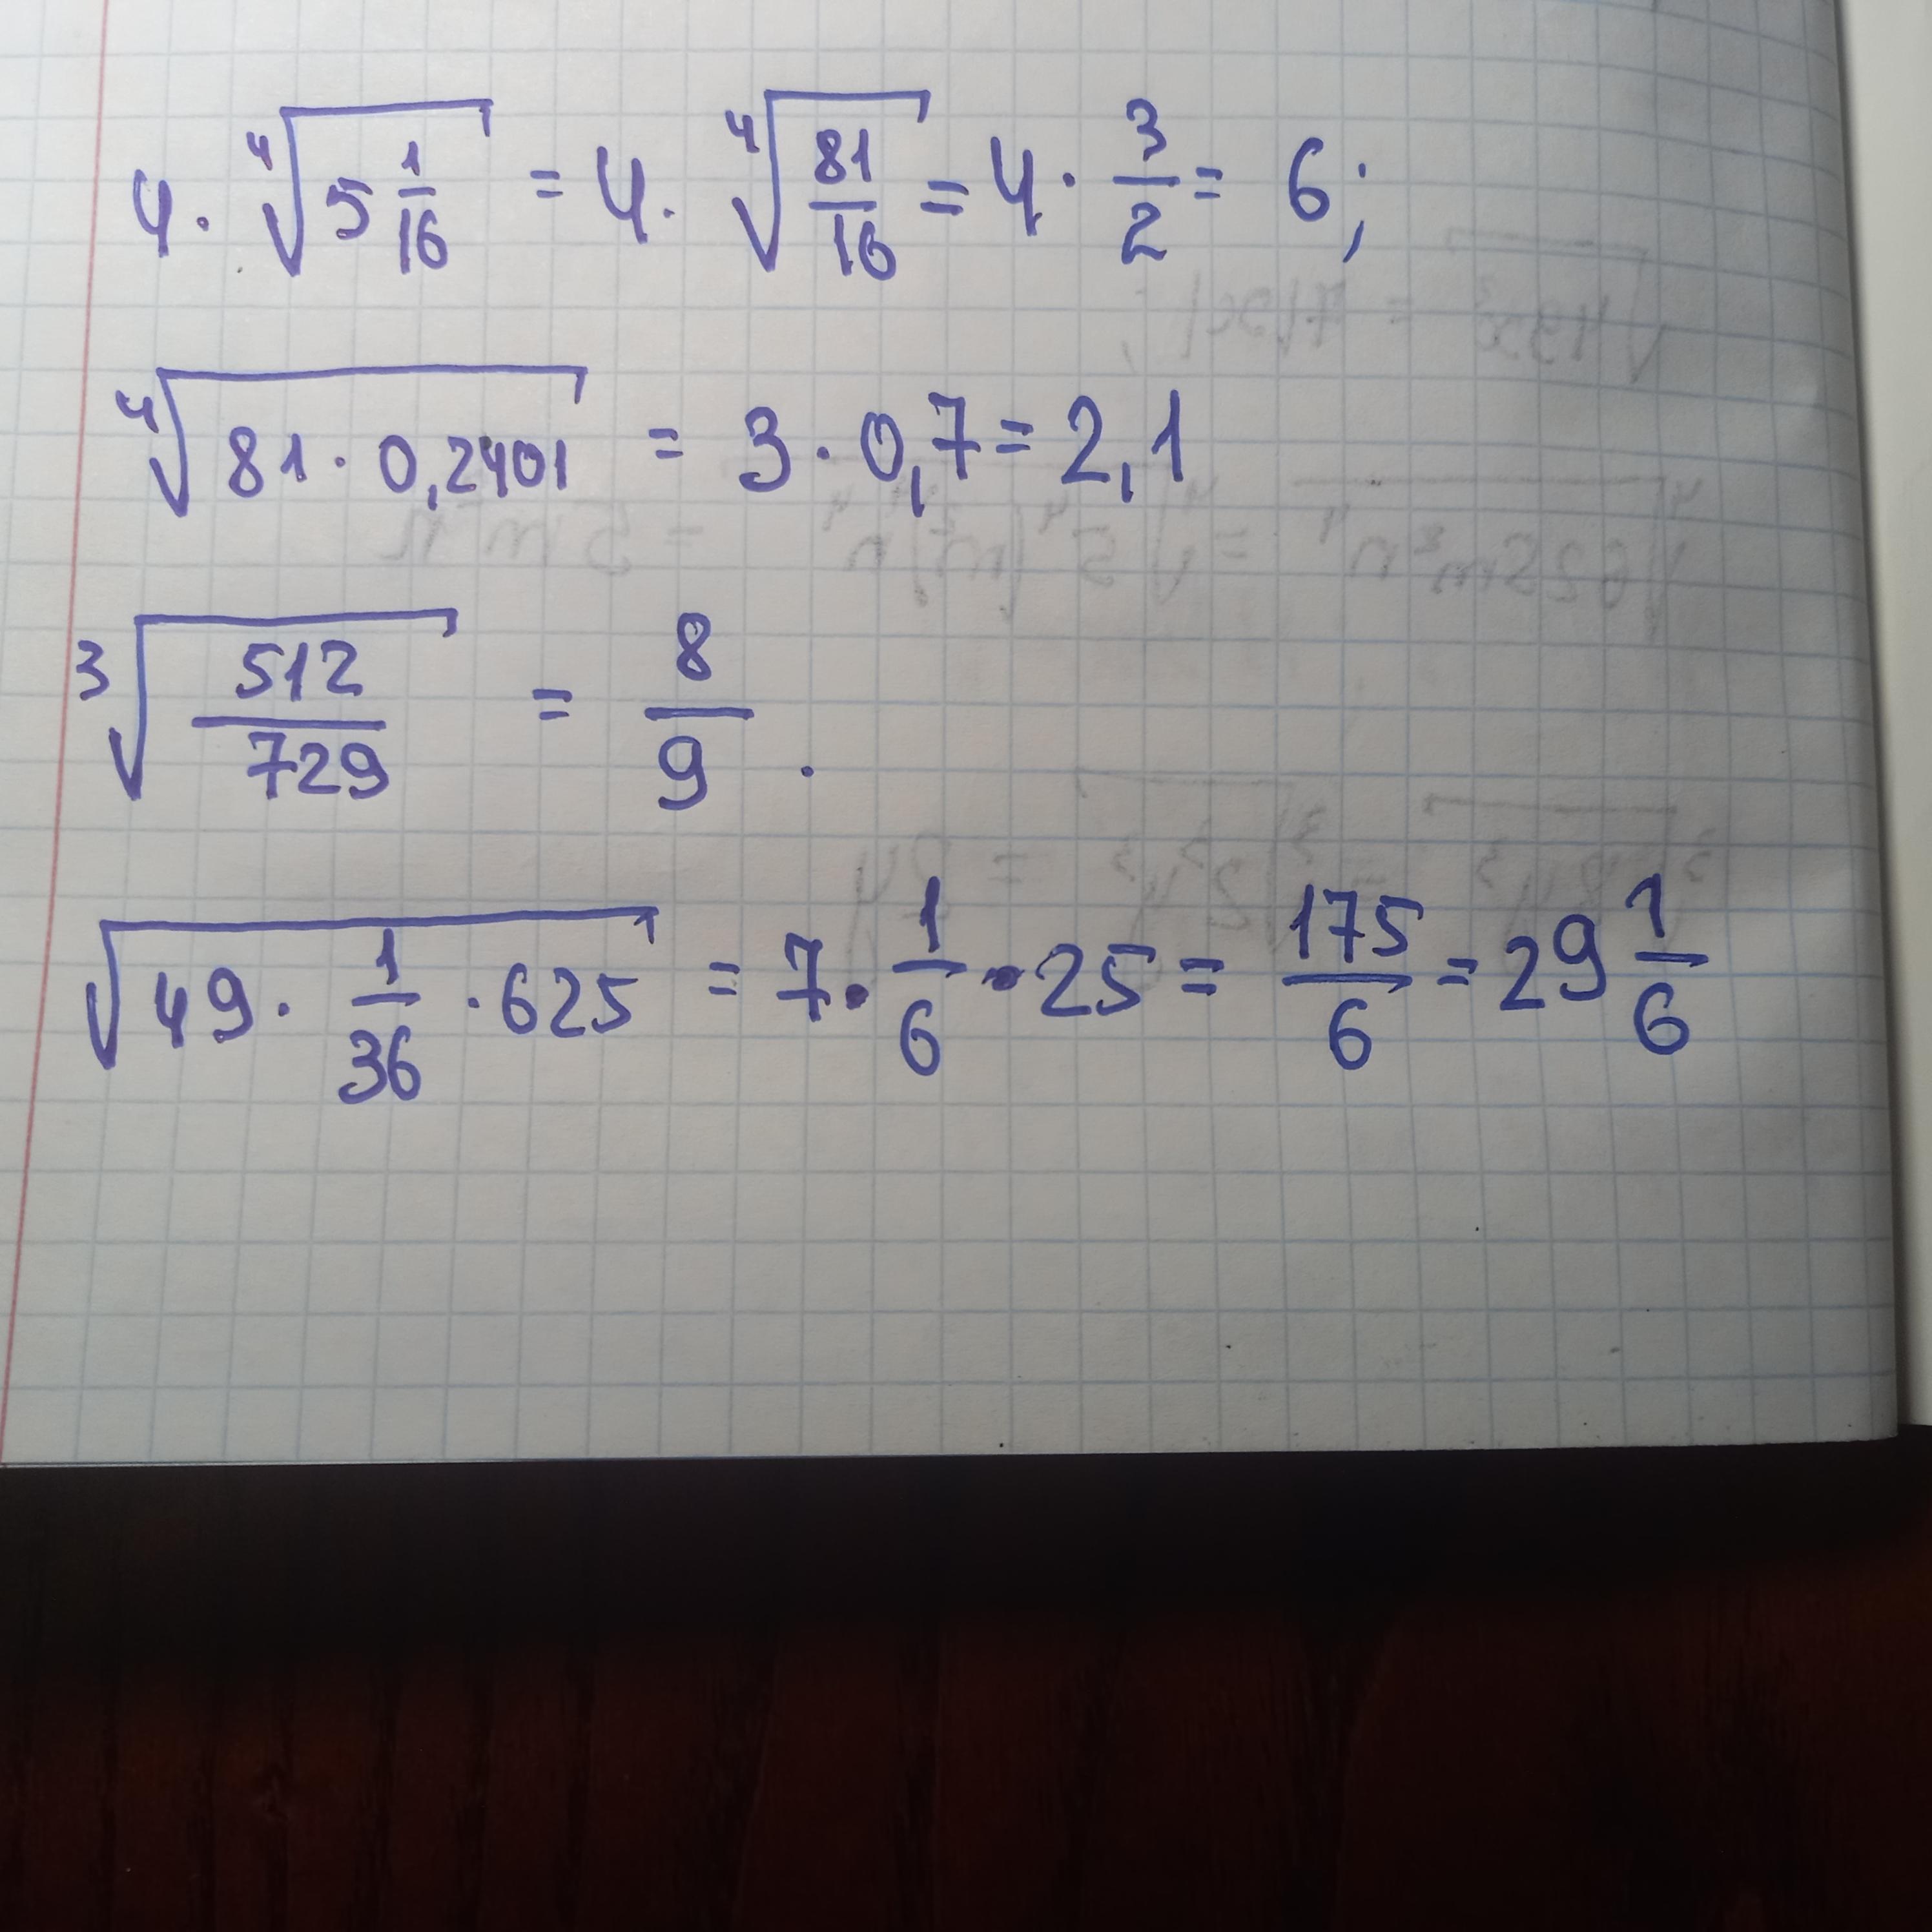 4 · ⁴√(5 1/16) = 4 · ⁴√(81/16) = 4 · 3/2 = 6;
⁴√(81 · 0,2401) = 3 · 0,7 = 2,1
³√(512/729) = 8/9 .
√(49 · 1/36 · 625) = 7 · 1/6 · 25 = 175/6 = 29 1/6